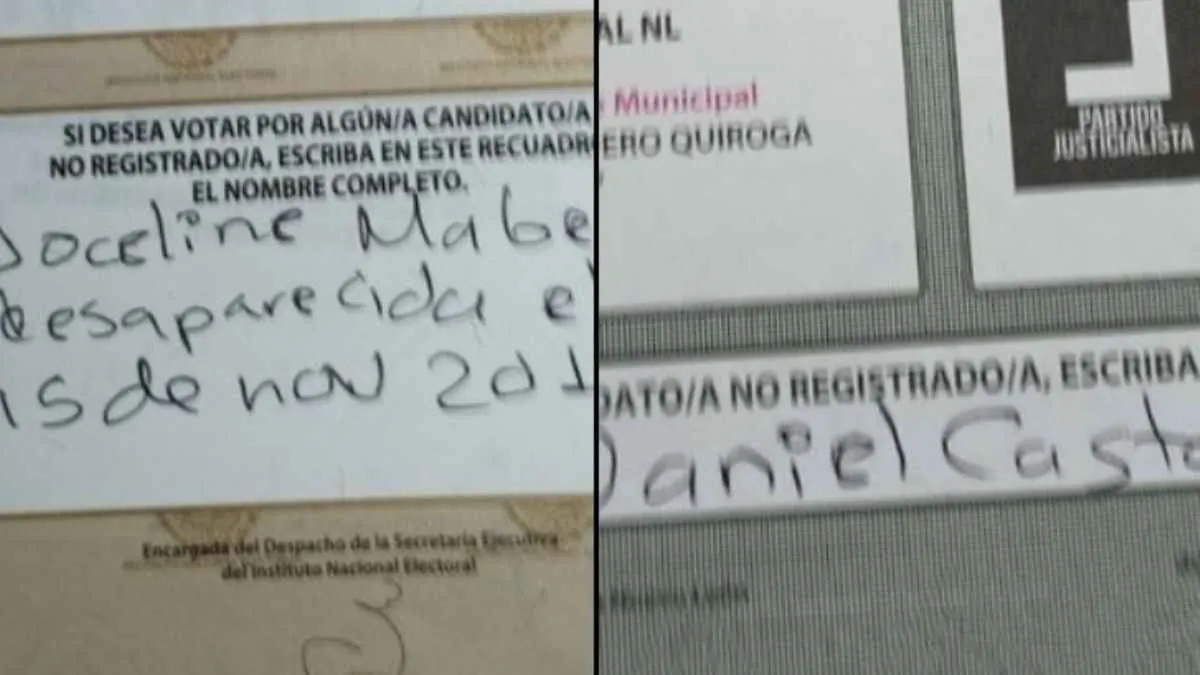 INSTITUTO NACIONAL ELECTORAL
SI DESEA VOTAR POR ALGÚN/A CANDIDATO/A
NO REGISTRADO/A, ESCRIBA EN ESTE RECUADR
EL NOMBRE COMPLETO.
Joceline Mabe
desaparecida el
15 de nov 201
Encargada del Despacho de la Secretaría Ejecutiva
del Instituto Nacional Electoral
AL NL
Municipal
ERO QUIROGA
PARTIDO
JUSTICIALISTA
DATO/A NO REGISTRADO/A, ESCRIBA
Daniel Casta
Nuevo León